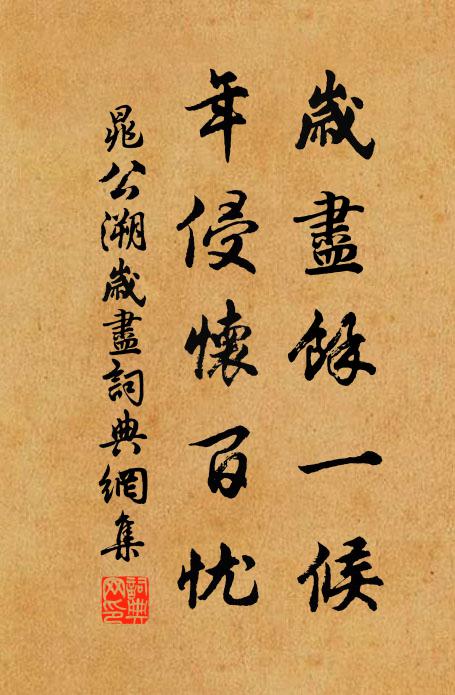 歲盡餘一候
年侵懷百忧
晁公溯歲盡詞典網集
詞典網印